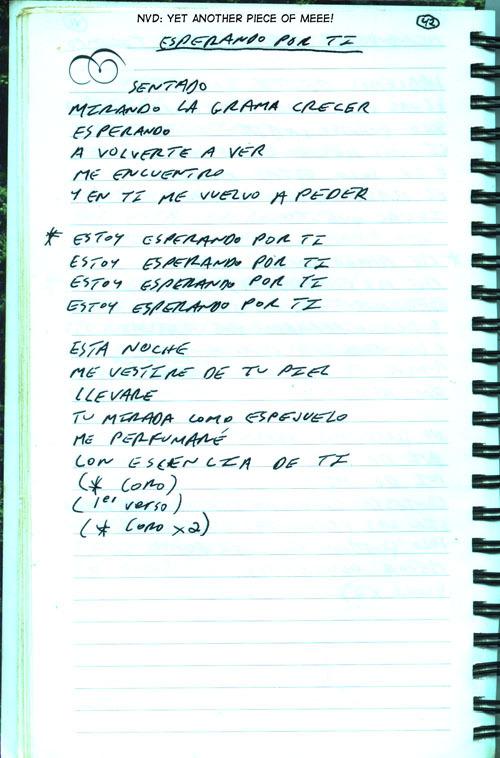 NVD: YET ANOTHER PIECE OF MEEE!
42
ESPERANDO POR TI
SENTADO
MIRANDO LA GRAMA CRECER
ESPERANDO
A VOLVERTE A VER
ME ENCUENTRO
Y EN TI ME VUELVO A PEDER
* ESTOY ESPERANDO POR TI
ESTOY ESPERANDO POR TI
ESTOY ESPERANDO POR TI
ESTOY ESPERANDO POR TI
ESTA NOCHE
ME VESTIRE DE TU PIEL
LLEVARE
TU MIRADA COMO ESPEJUELO
ME PERFUMARÉ
CON ESCENCIA DE TI
(* CORO)
(1er verso)
(* CORO x2)